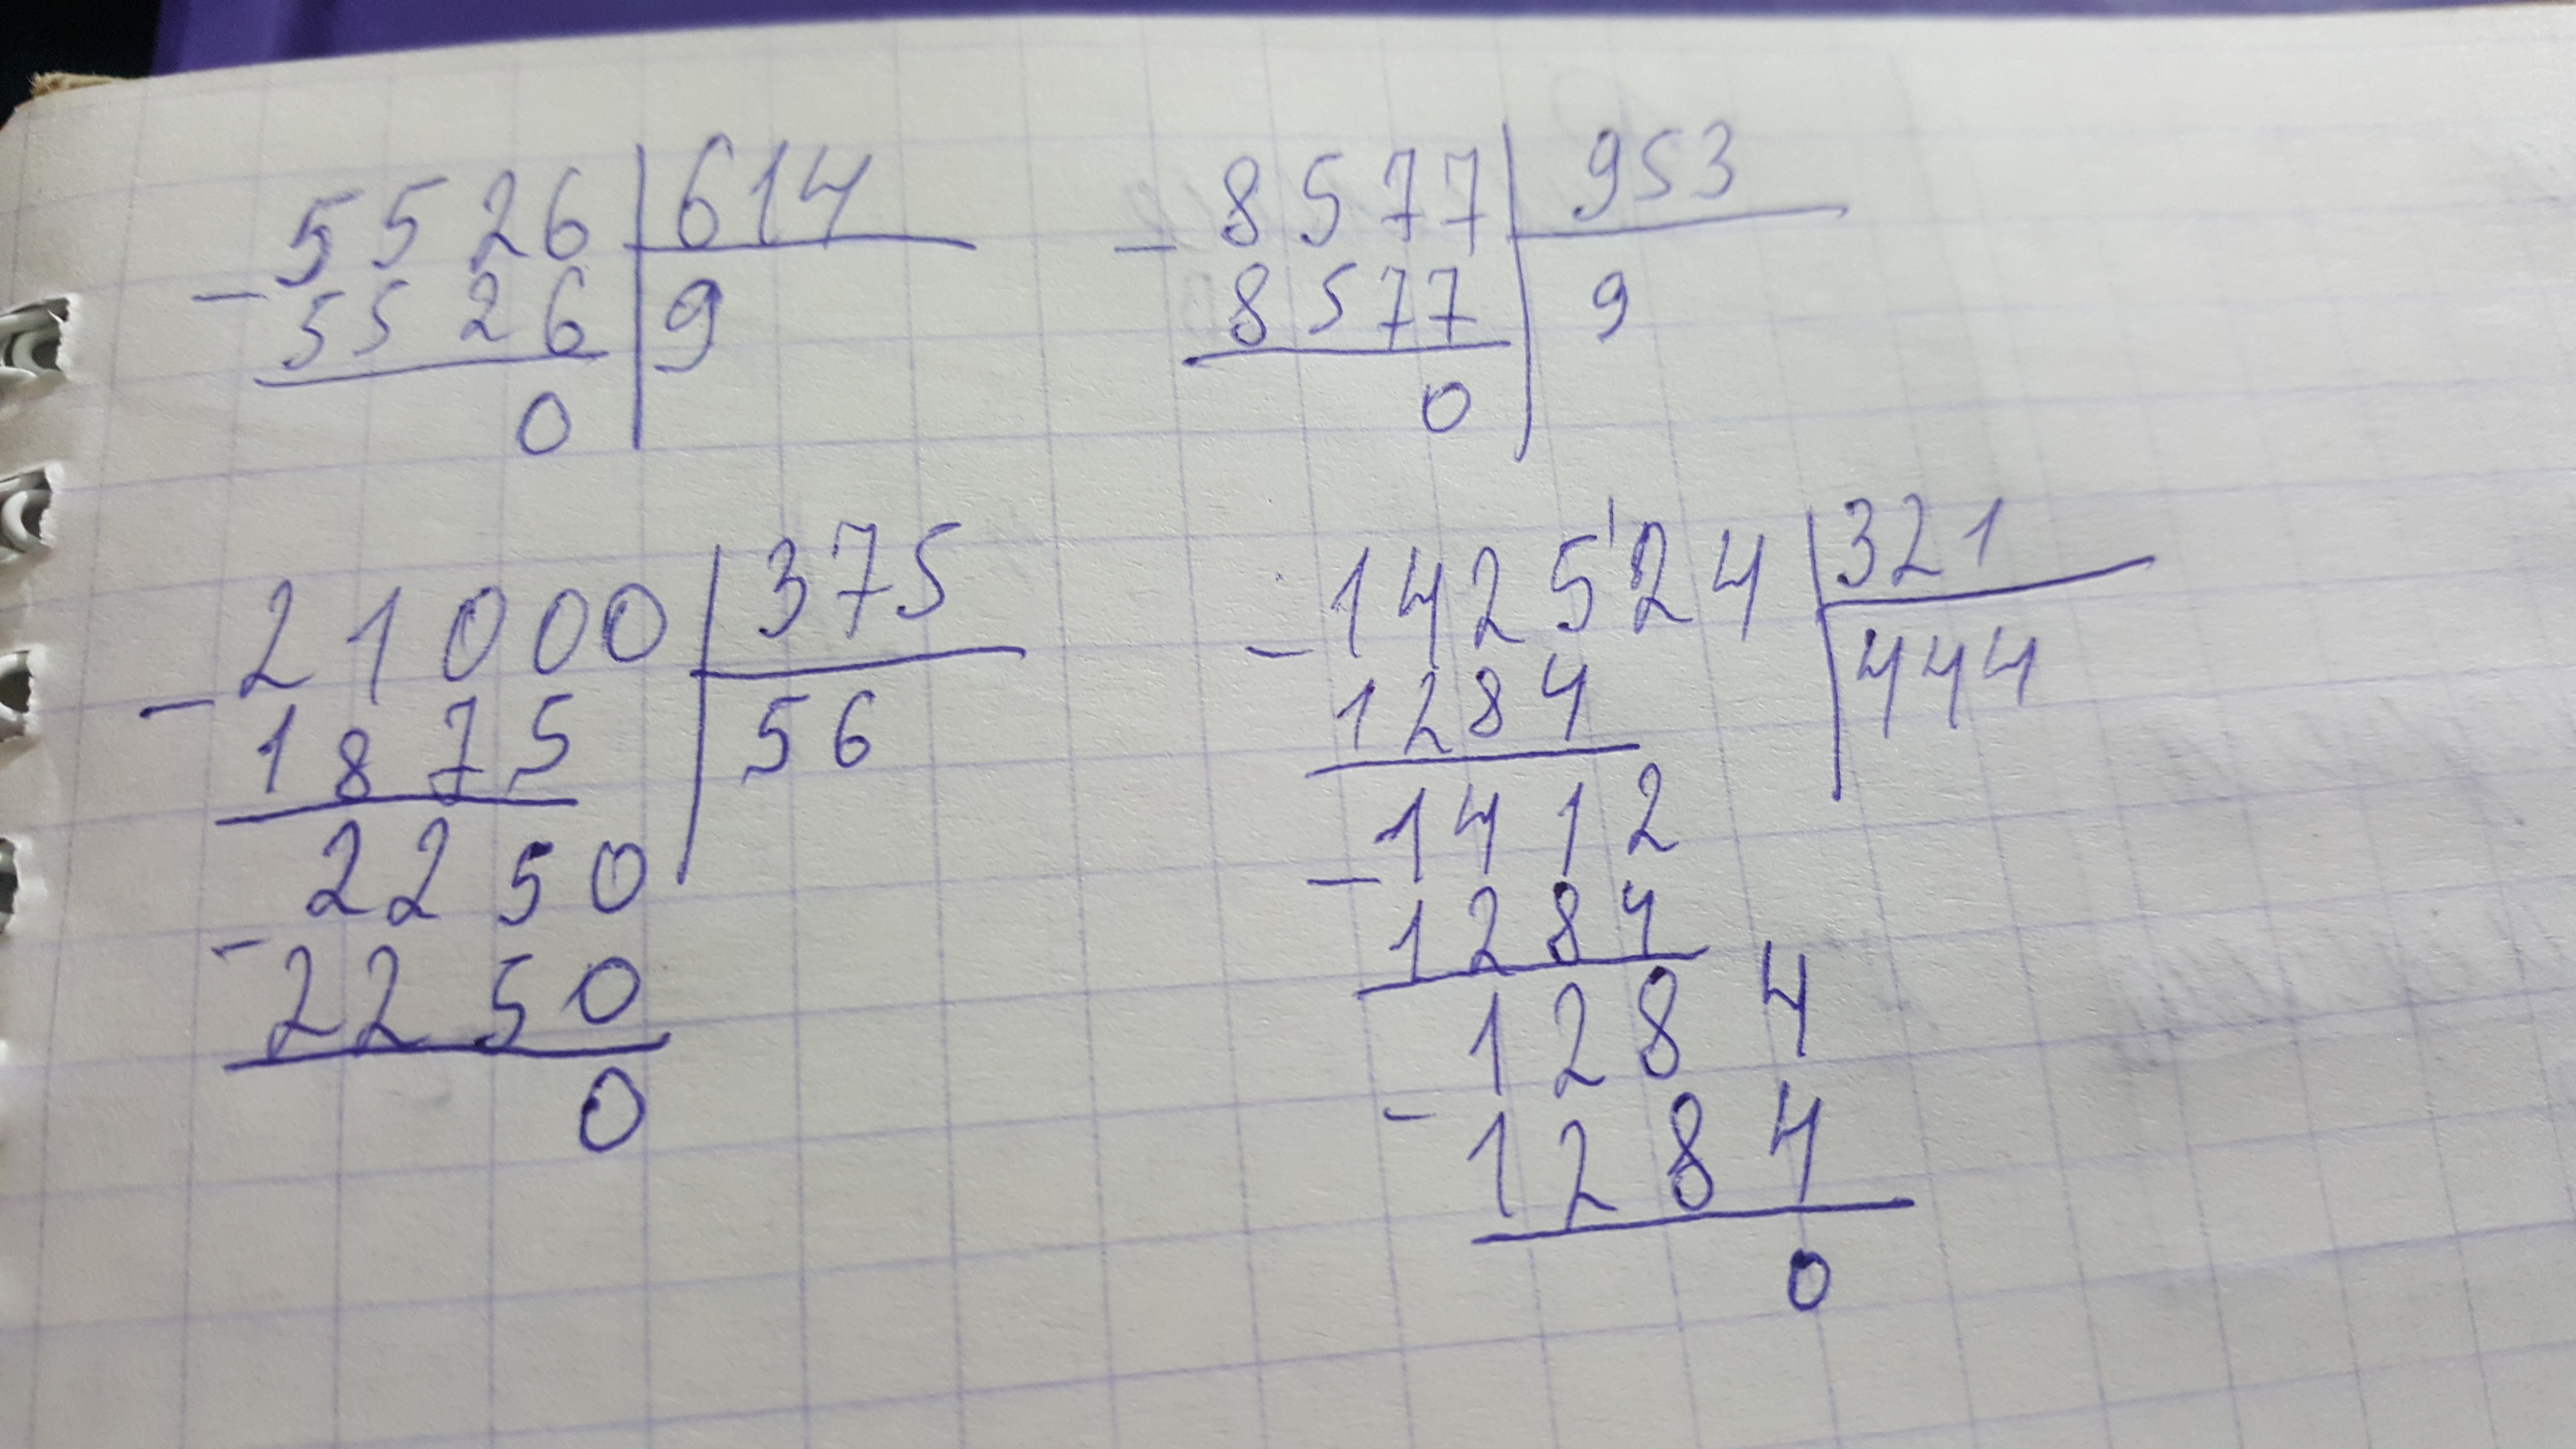 5526 614
- 5526 9
0
- 8577 953
8577 9
0
21000 375
- 1875 56
2250
- 2250
0
- 1425'24 321
1284 444
- 1412
1284
1284
- 1284
0